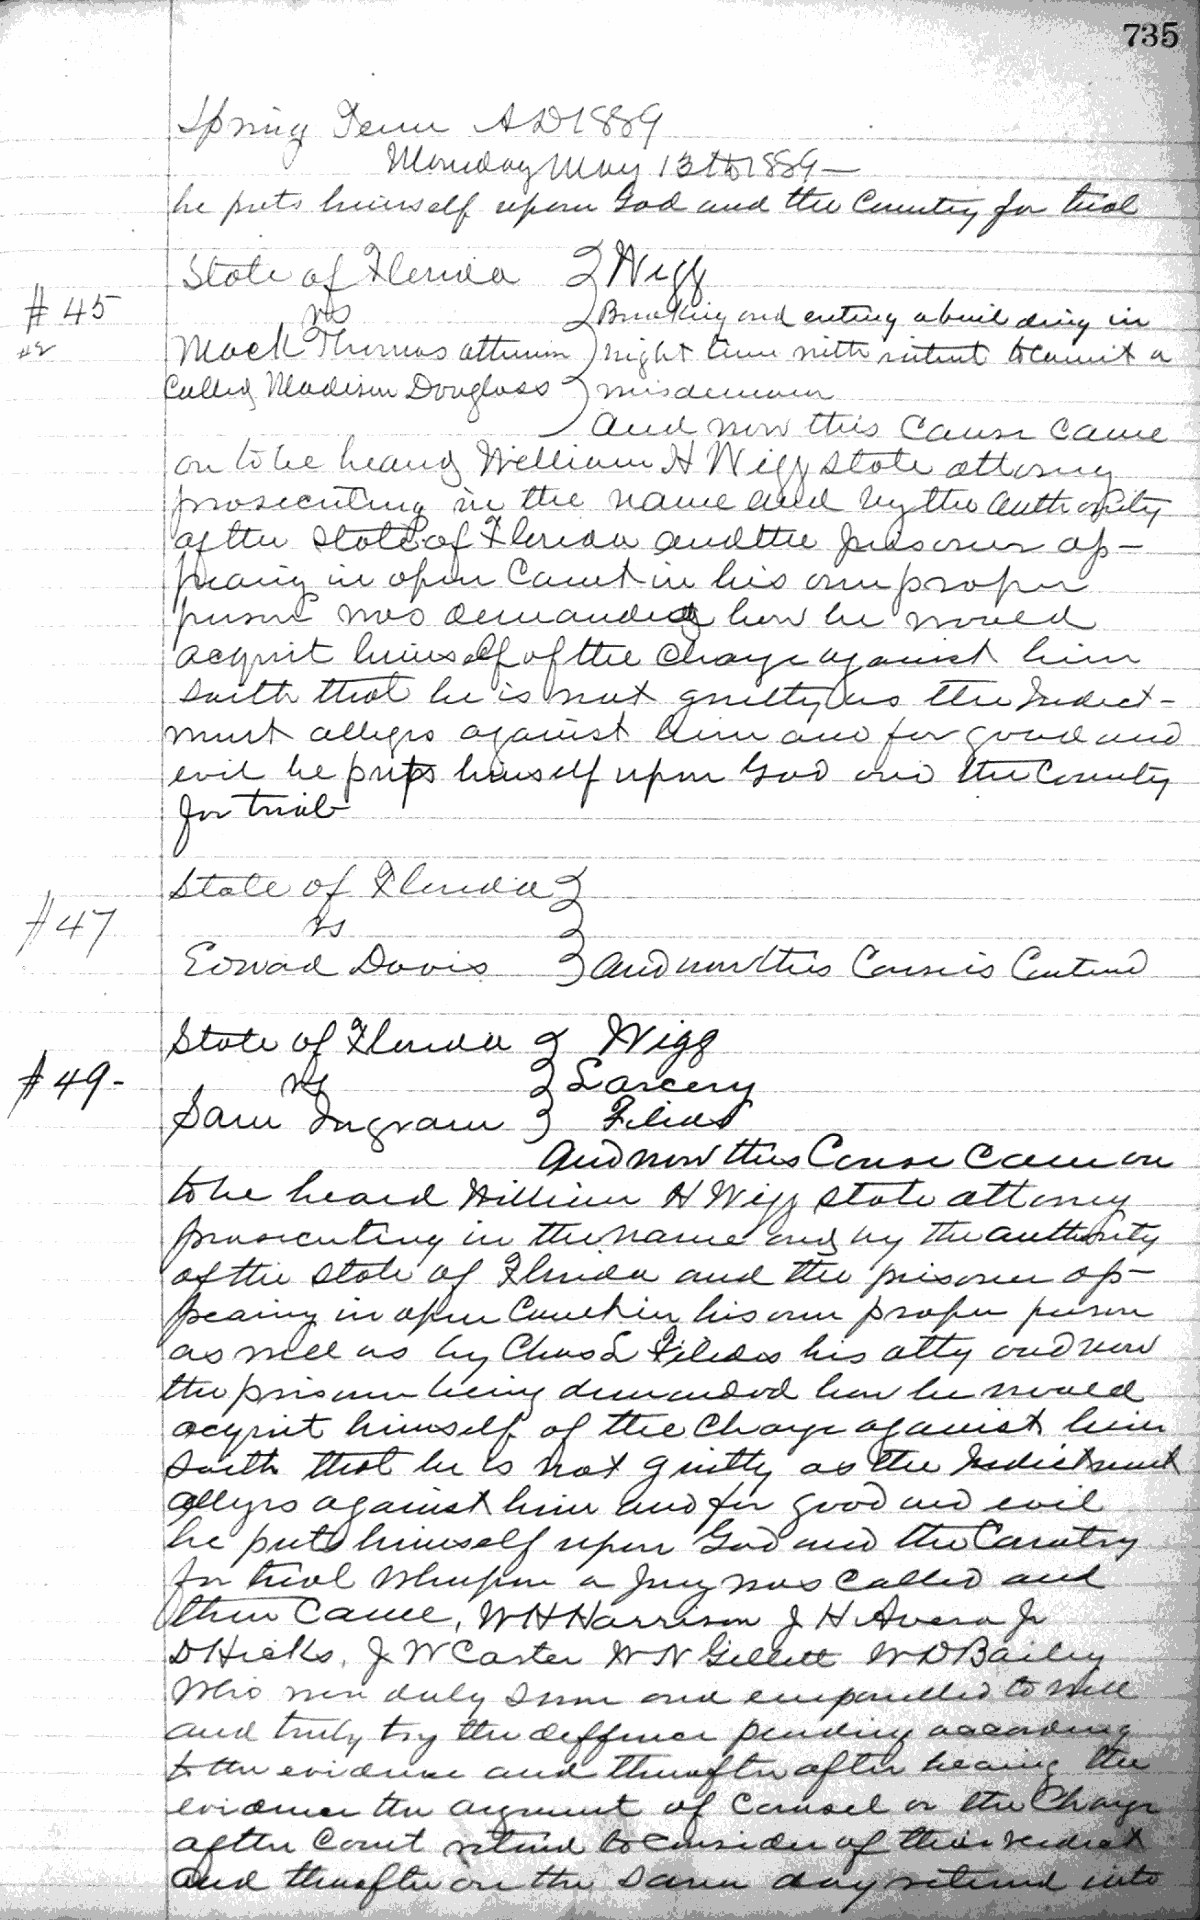 735
Spring Term A D 1889
Monday May 13th 1889 —
he puts himself upon God and the Country for trial
State of Florida } Wigg
# 45 vs } Breaking and entring a buil ding in
Mack Thomas attimes } night time with intent to comit a
Called Madison Douglass } misdemenor
And now this Cause came
on to be heard William H Wigg state attorney
prosecuting in the name and by the authority
of the State of Florida and the prisoner ap-
pearing in open Court in his own proper
person was demanded how he would
acquit himself of the Charge against him
saith that he is not guilty as the Indict-
ment alleges against him and for good and
evil he puts himself upon God and the Country
for trial
State of Florida }
# 47 vs }
Edward Davis } And now this Cause is Contind
State of Florida } Wigg
# 49 - vs } Larceny
Sam Ingram } Fildes
And now this Cause came on
to be heard William H Wigg state attorney
prosecuting in the name and by the authority
of the State of Florida and the prisoner ap-
pearing in open Court in his own proper person
as well as by Chas L Fildes his atty and now
the prisoner being demanded how he would
acquit himself of the Charge against him
saith that he is not guilty as the Indictment
alleges against him and for good and evil
he puts himself upon God and the Country
for trial Whereupon a Jury was called and
then came, W H Harrison J H Avera Jr
D Hicks, J W Carter W N Gillett W D Bailey
Who were duly sworn and empanelled to well
and truly try the difference pending according
to the evidence and thereafter after hearing the
evidence the argument of Counsel or the Charge
of the Court retired to consider of their verdict
and thereafter on the same day returned into